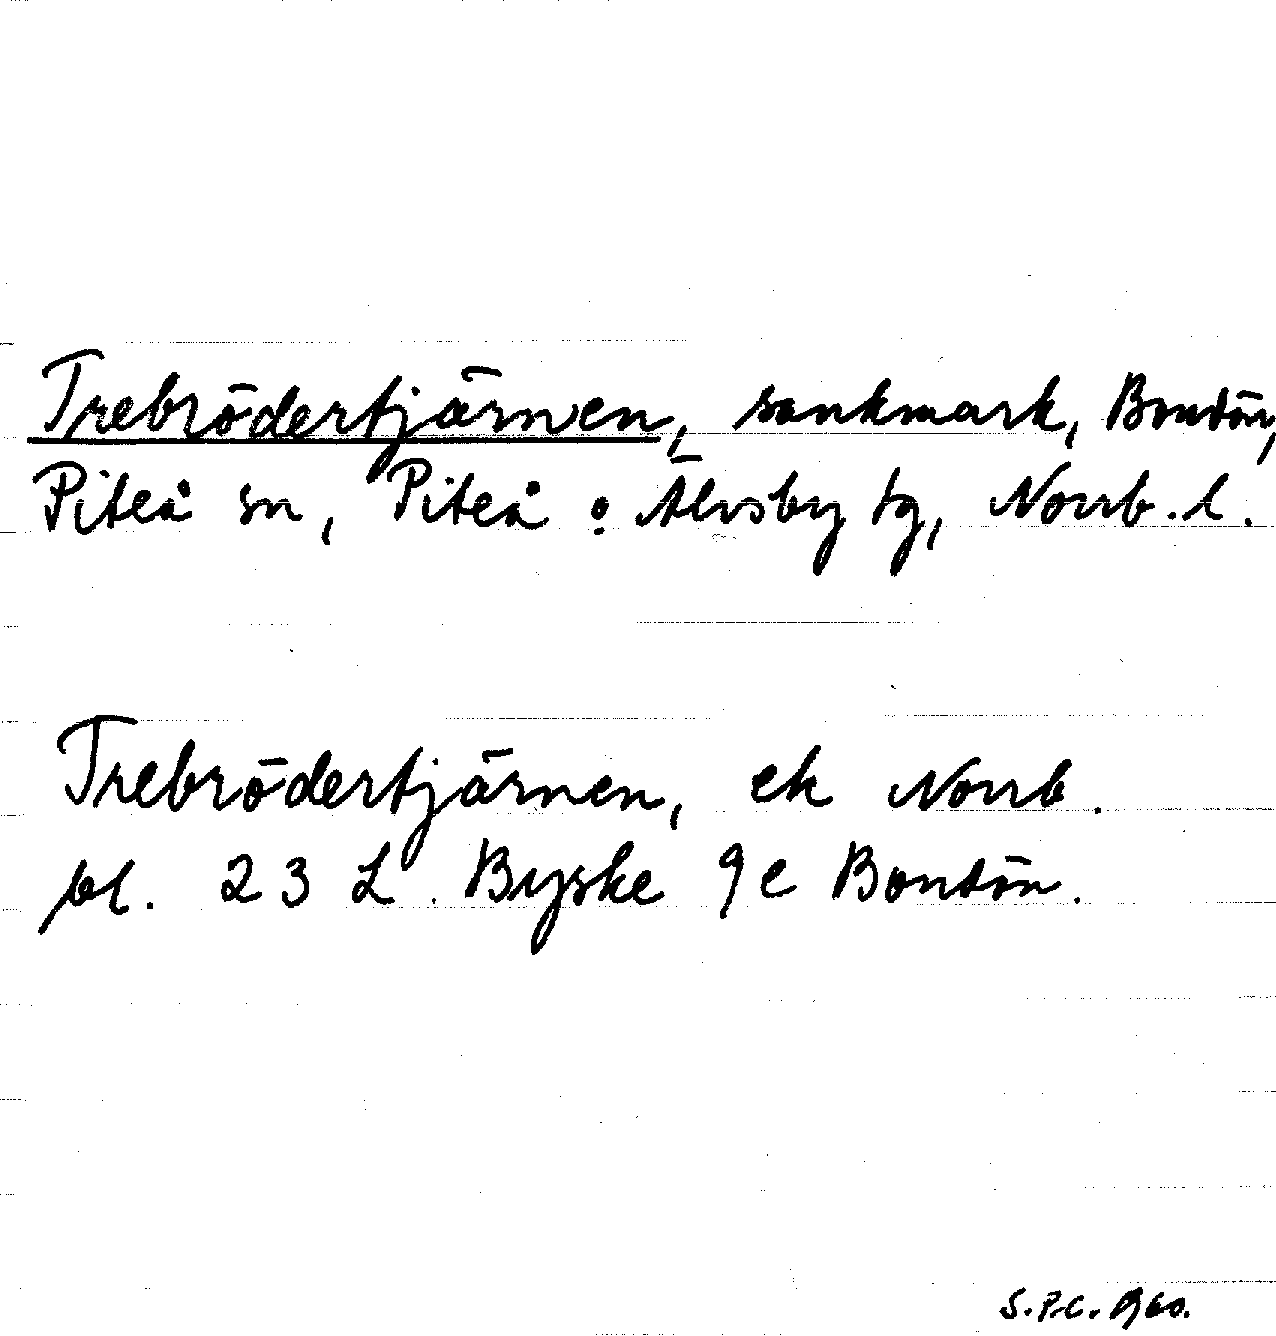 Trebrödertjärnen, sankmark, Bondön,
Piteå sn, Piteå o Älvsby tg, Norrb. l.
Trebrödertjärnen, ek Norrb.
bl. 23 L Byske 9e Bondön.
S.P.C. 1960.